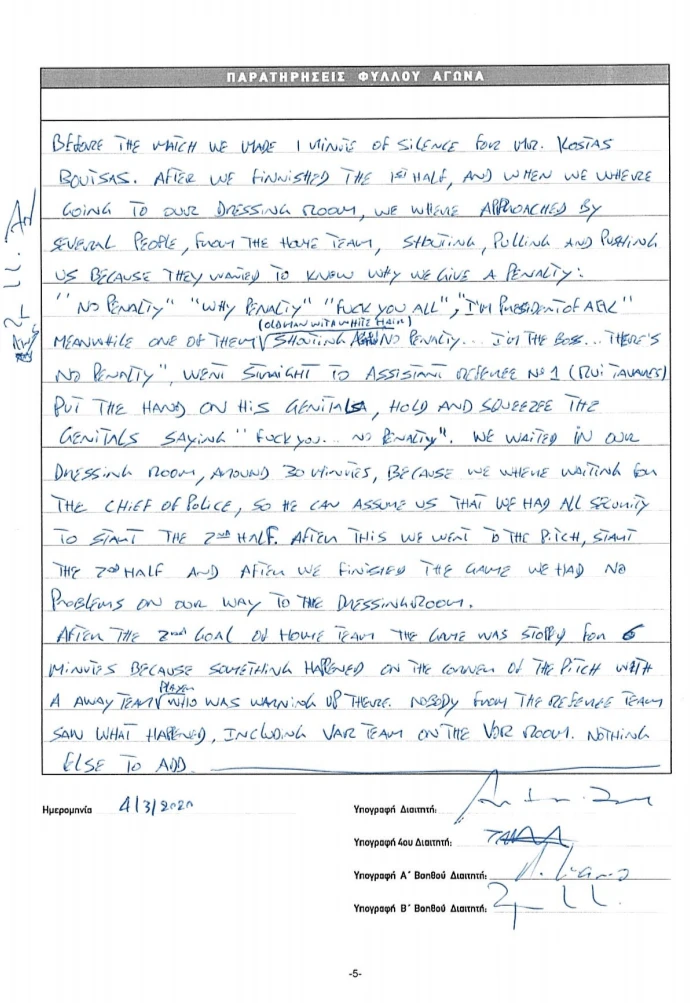 ΠΑΡΑΤΗΡΗΣΕΙΣ ΦΥΛΛΟΥ ΑΓΩΝΑ
BEFORE THE MATCH WE MADE 1 MINUTE OF SILENCE FOR MR. KOSTAS
BOUTSAS. AFTER WE FINNISHED THE 1ST HALF, AND WHEN WE WHERE
GOING TO OUR DRESSING ROOM, WE WHERE APPROACHED BY
SEVERAL PEOPLE, FROM THE HOME TEAM, SHOUTING, PULLING AND PUSHING
US BECAUSE THEY WANTED TO KNEW WHY WE GIVE A PENALTY:
"NO PENALTY" "WHY PENALTY" "FUCK YOU ALL", "I'M PRESIDENT OF AEK"
(OLD MAN WITH WHITE HAIR)
MEANWHILE ONE OF THEM SHOUTING NO PENALTY... I'M THE BOSS... THERE'S
NO PENALTY", WENT STRAIGHT TO ASSISTANT REFEREE Nº1 (RUI TAVARES)
PUT THE HAND ON HIS GENITALS, HOLD AND SQUEEZEE THE
GENITALS SAYING "FUCK YOU... NO PENALTY". WE WAITED IN OUR
DRESSING ROOM, AROUND 30 MINUTES, BECAUSE WE WHERE WAITING FOR
THE CHIEF OF POLICE, SO HE CAN ASSUME US THAT WE HAD ALL SECURITY
TO START THE 2nd HALF. AFTER THIS WE WENT TO THE PITCH, START
THE 2nd HALF AND AFTER WE FINISHED THE GAME WE HAD NO
PROBLEMS ON OUR WAY TO THE DRESSING ROOM.
AFTER THE 2nd GOAL OF HOME TEAM THE GAME WAS STOPPED FOR 6
MINUTES BECAUSE SOMETHING HAPPENED ON THE CORNER OF THE PITCH WITH
PLAYER
A AWAY TEAM WHO WAS WARNING UP THERE. NOBODY FROM THE REFEREE TEAM
SAW WHAT HAPPENED, INCLUDING VAR TEAM ON THE VOR ROOM. NOTHING
ELSE TO ADD
Ημερομηνία 4/3/2020
Υπογραφή Διαιτητή:
Υπογραφή 4ου Διαιτητή:
Υπογραφή Α΄ Βοηθού Διαιτητή:
Υπογραφή Β΄ Βοηθού Διαιτητή:
-5-